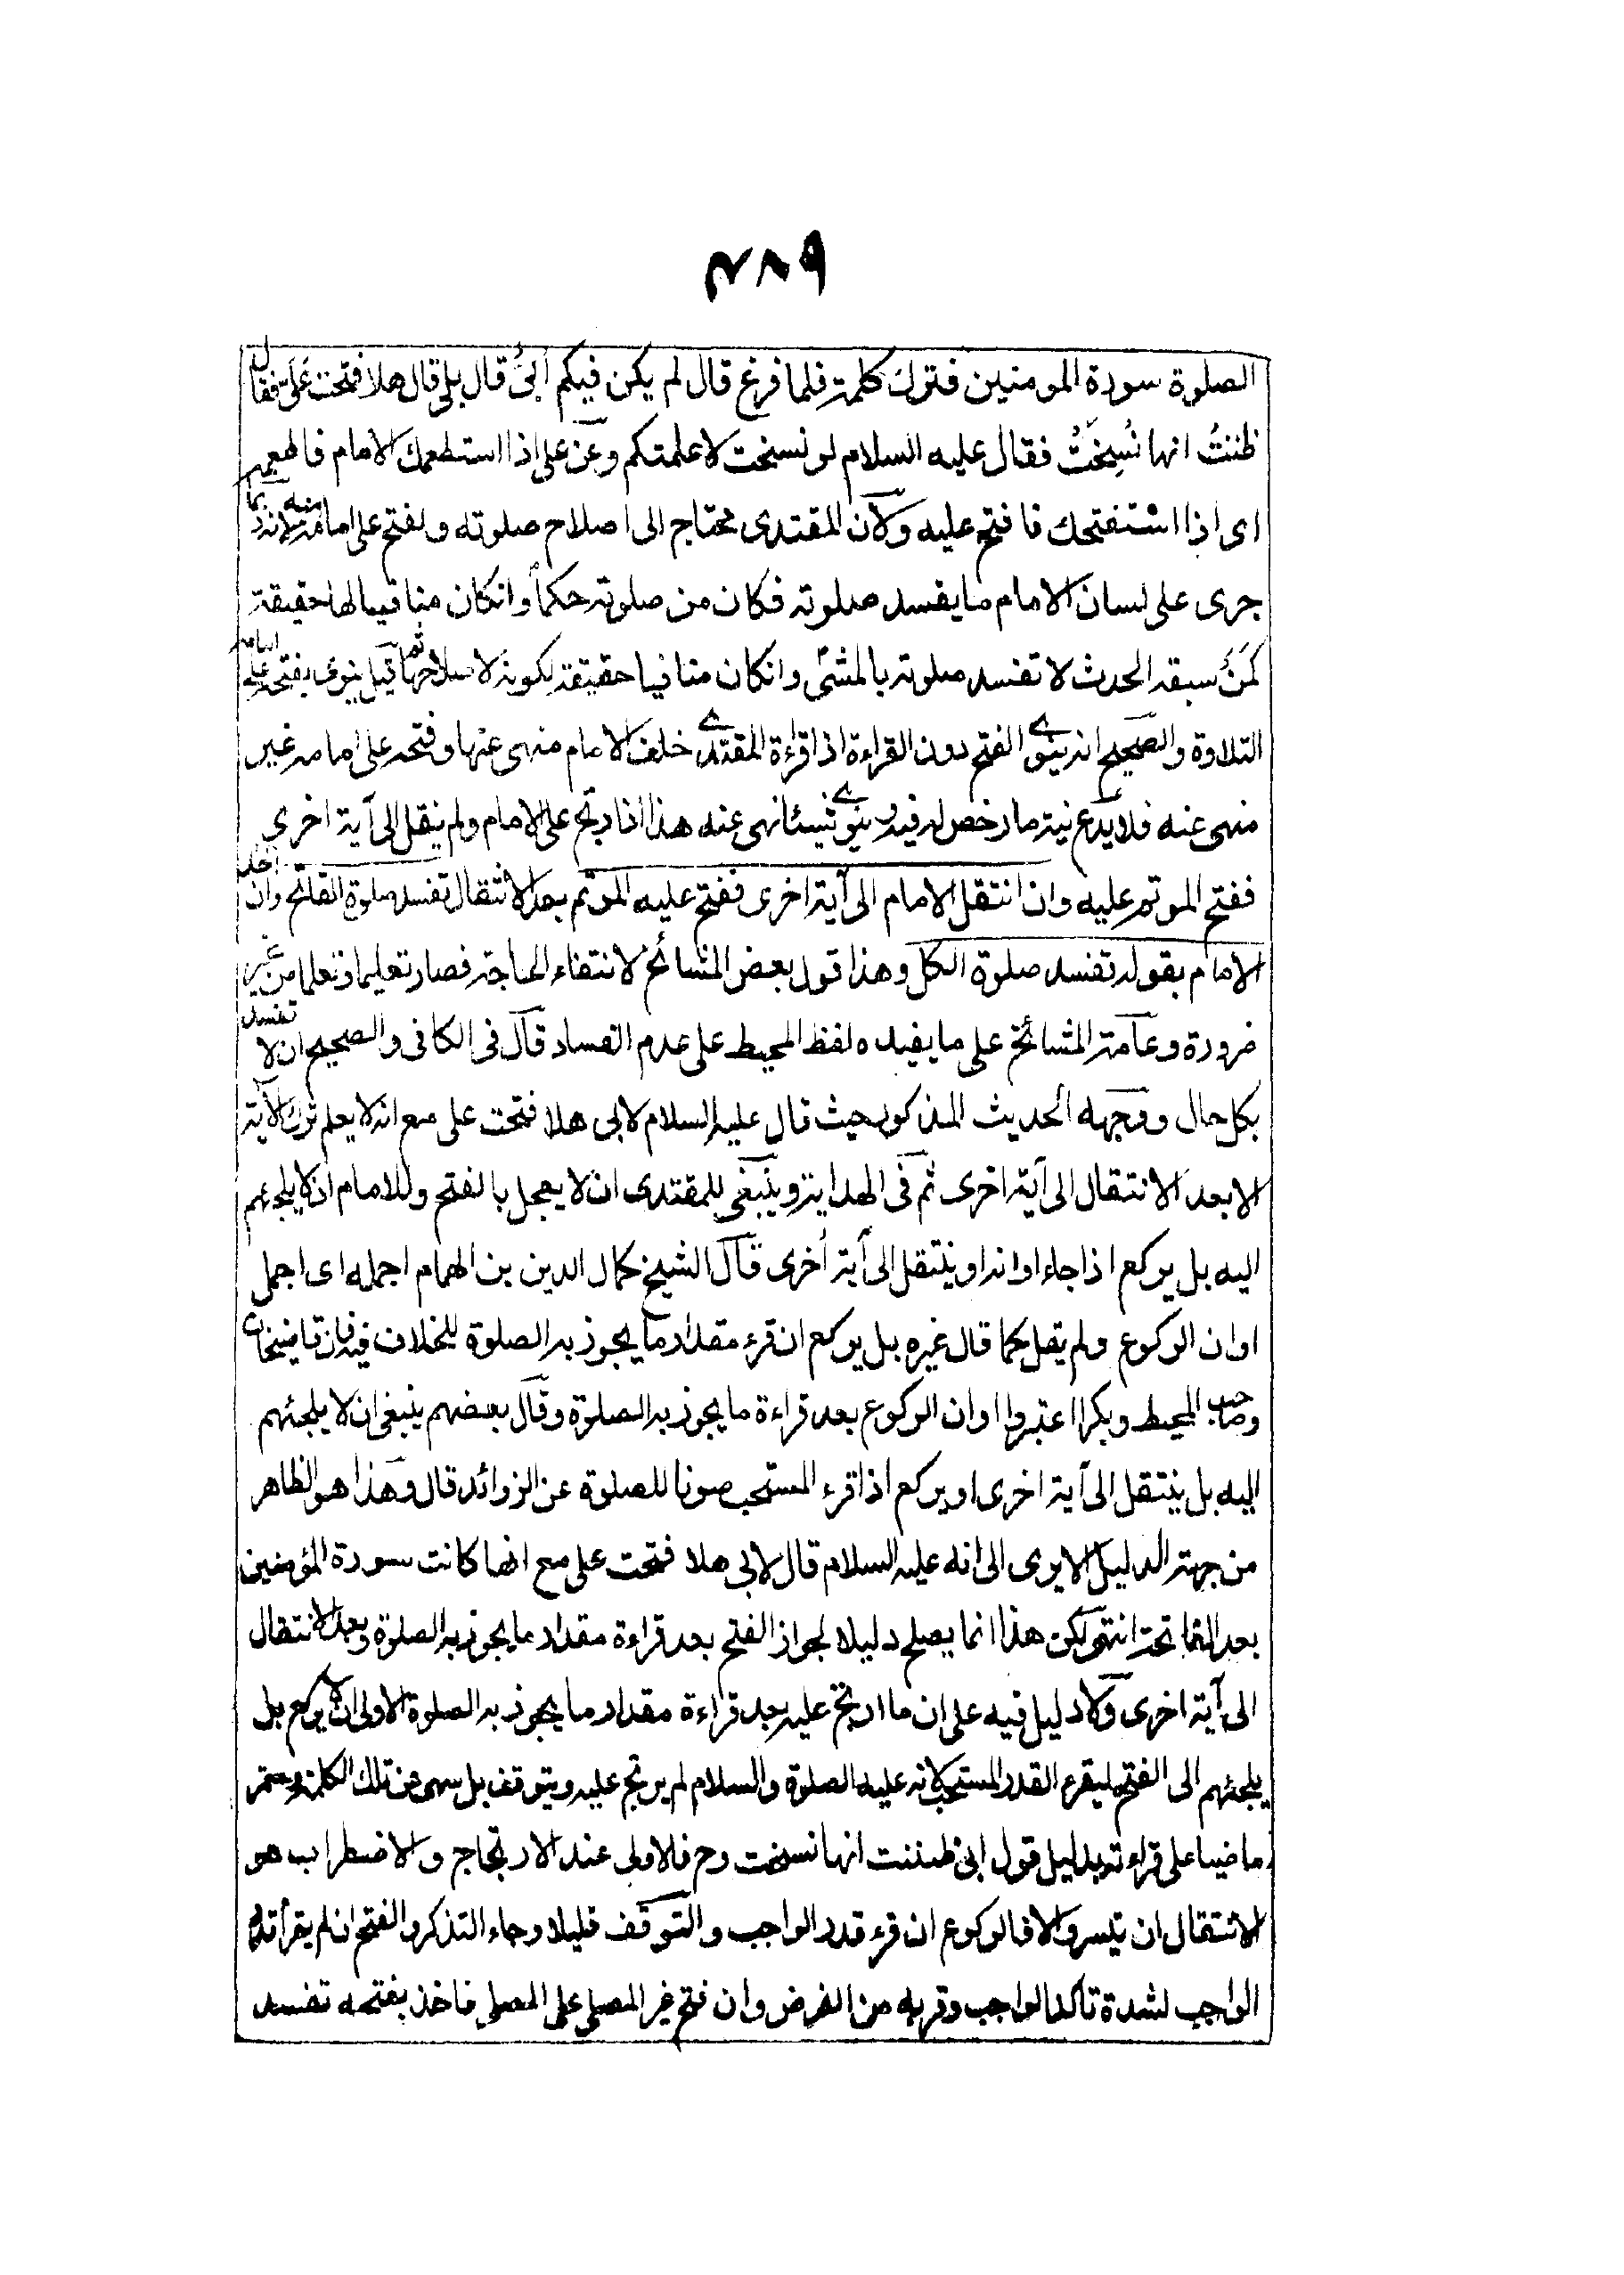 ۴۸۹
الصلوة سورة المومنين فترك كلمة فلما فرغ قال لم يكن فيكم اُبَىّ قال بلى قال هلا فتحت علىّ فقال
ظننتُ انها نُسِخَتْ فقال عليه السلام لو نسخت لاعلمتكم وعن على اذا استطعمك الامام فاطعمه
اى اذا استفتحك فافتح عليه ولان المقتدى محتاج الى اصلاح صلوته ولفتح على امامه منه لانه ربما
جرى على لسان الامام ما يفسد صلوته فكان من صلوته حكماً وانكان منافيا لها حقيقة
كَمَنْ سبقه الحدث لا تفسد صلوته بالمشى وانكان منافيا حقيقة لكونه لاصلاحها ثم قيل ينوى بفتحه على امامه
التلاوة والصحيح انه ينوى الفتح دون القراءة اذ اقراءة المقتدى خلف الامام منهى عنها وفتحه على امامه غير
منهى عنه فلا يدع نية ما رخص له فيه وينوى شيئا نهى عنه هذا اذا ارتج على الامام ولم ينقل الى آية اخرى
ففتح الموتم عليه وان انتقل الامام الى آية اخرى ففتح عليه الموتم بعد الانتقال تفسد صلوة الفاتح وان اخذ
الامام بقوله تفسد صلوة الكل وهذا قول بعض المشائخ لانتفاء الحاجة فصار تعليما وتعلما من غير
ضرورة وعامة المشائخ على ما يفيده لفظ المحيط على عدم الفساد قال فى الكافى والصحيح ان لا تفسد
بكل حال ووجهه الحديث المذكور حيث قال عليه السلام لابى هلا فتحت على مع انه لا يعلم ترك الآية
الا بعد الانتقال الى آية اخرى ثم فى الهداية وينبغى للمقتدى ان لا يعجل بالفتح وللامام ان لا يلجئهم
اليه بل يركع اذا جاء اوانه او ينتقل الى آية اُخرى قال الشيخ كمال الدين بن الهمام اجمله اى اجمل
اوان الركوع ولم يقل كما قال غيره بل يركع ان قرء مقدار ما يجوز به الصلوة للخلاف فيه فان قاضيخان
وصاحب المحيط وبكرا اعتبروا اوان الركوع بعد قراءة ما يجوز به الصلوة وقال بعضهم ينبغى ان لا يلجئهم
اليه بل ينتقل الى آية اخرى او يركع اذا قرء المستحب صونا للصلوة عن الزوائد قال وهذا هو الظاهر
من جهة الدليل الا يرى الى انه عليه السلام قال لابى هلا فتحت على مع انها كانت سورة المؤمنين
بعد الفاتحة انتهى لكن هذا انما يصلح دليلا لجواز الفتح بعد قراءة مقدار ما يجوز به الصلوة وبعد الانتقال
الى آية اخرى ولا دليل فيه على ان ما ارتج عليه بعد قراءة مقدار ما يجوز به الصلوة الاولى ان لا يركع بل
يلجئهم الى الفتح ليقرء القدر المستحب لانه عليه الصلوة والسلام لم يرتج عليه ويتوقف بل سهى عن تلك الكلمة ومر
ماضيا على قراءته بدليل قول ابى ظننت انها نسخت وح فالاولى عند الارتجاج والاضطراب هو
الانتقال ان تيسر والا فالركوع ان قرء قدر الواجب والتوقف قليلا رجاء التذكر والفتح ان لم يقرأ قدر
الواجب لشدة تاكد الواجب وقربه من الفرض وان فتح غير المصلى على المصلى فاخذ بفتحه تفسد